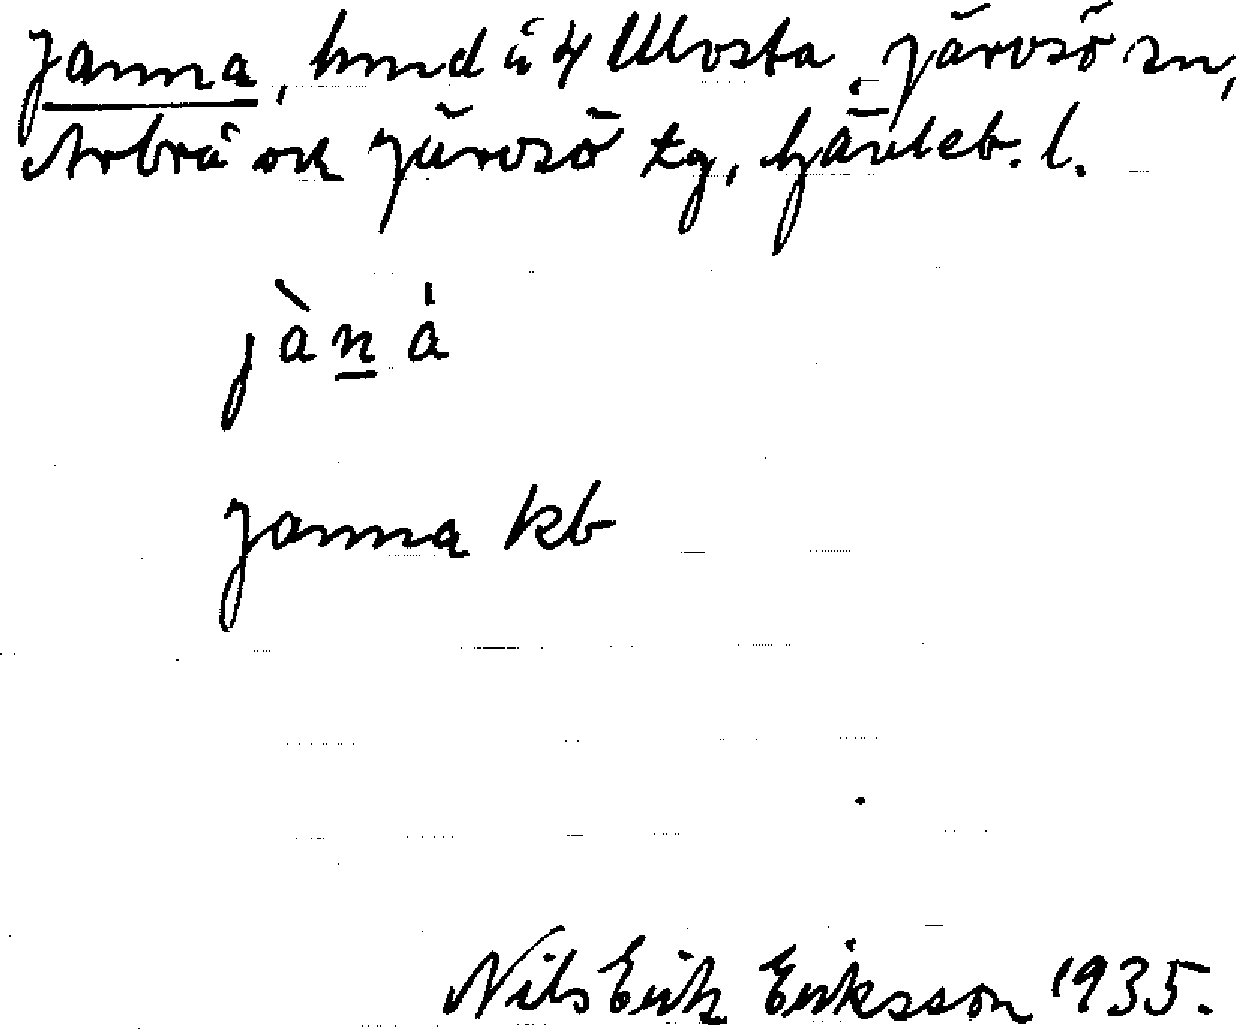 Janna, hmd å 4 Ulvsta, Järvsö sn,
Arbrå och Järvsö tg, Gävleb. l.
jànà
Janna kb
Nils Erik Eriksson 1935.